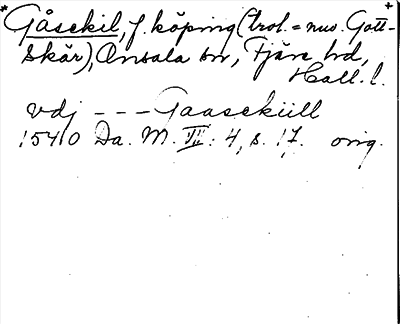 * Gåsekil, f. köping (trol. = nuv. Gott- +
skär), Onsala sn, Fjäre hd,
Hall. l.
vdj - - - Gaasekiill
1540 Da. M. VI: 4, s. 17. orig.